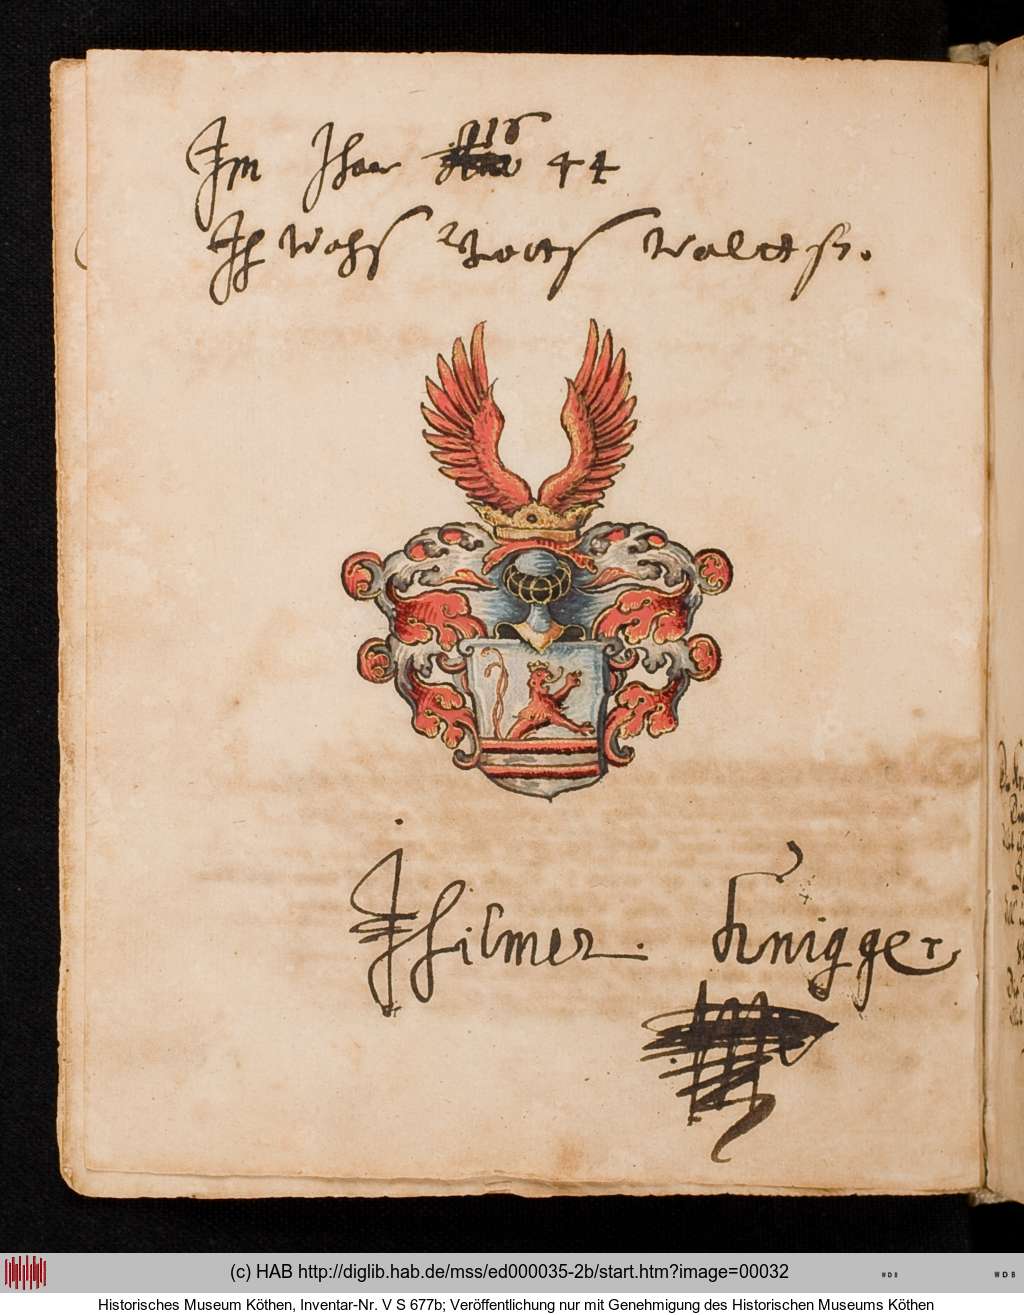 Im Jhaar 16 44
Ich wags Gott
JHilmer. Knigger
(c) HAB http://diglib.hab.de/mss/ed000035-2b/start.htm?image=00032
WDB
WDB
Historisches Museum Köthen, Inventar-Nr. V S 677b; Veröffentlichung nur mit Genehmigung des Historischen Museums Köthen